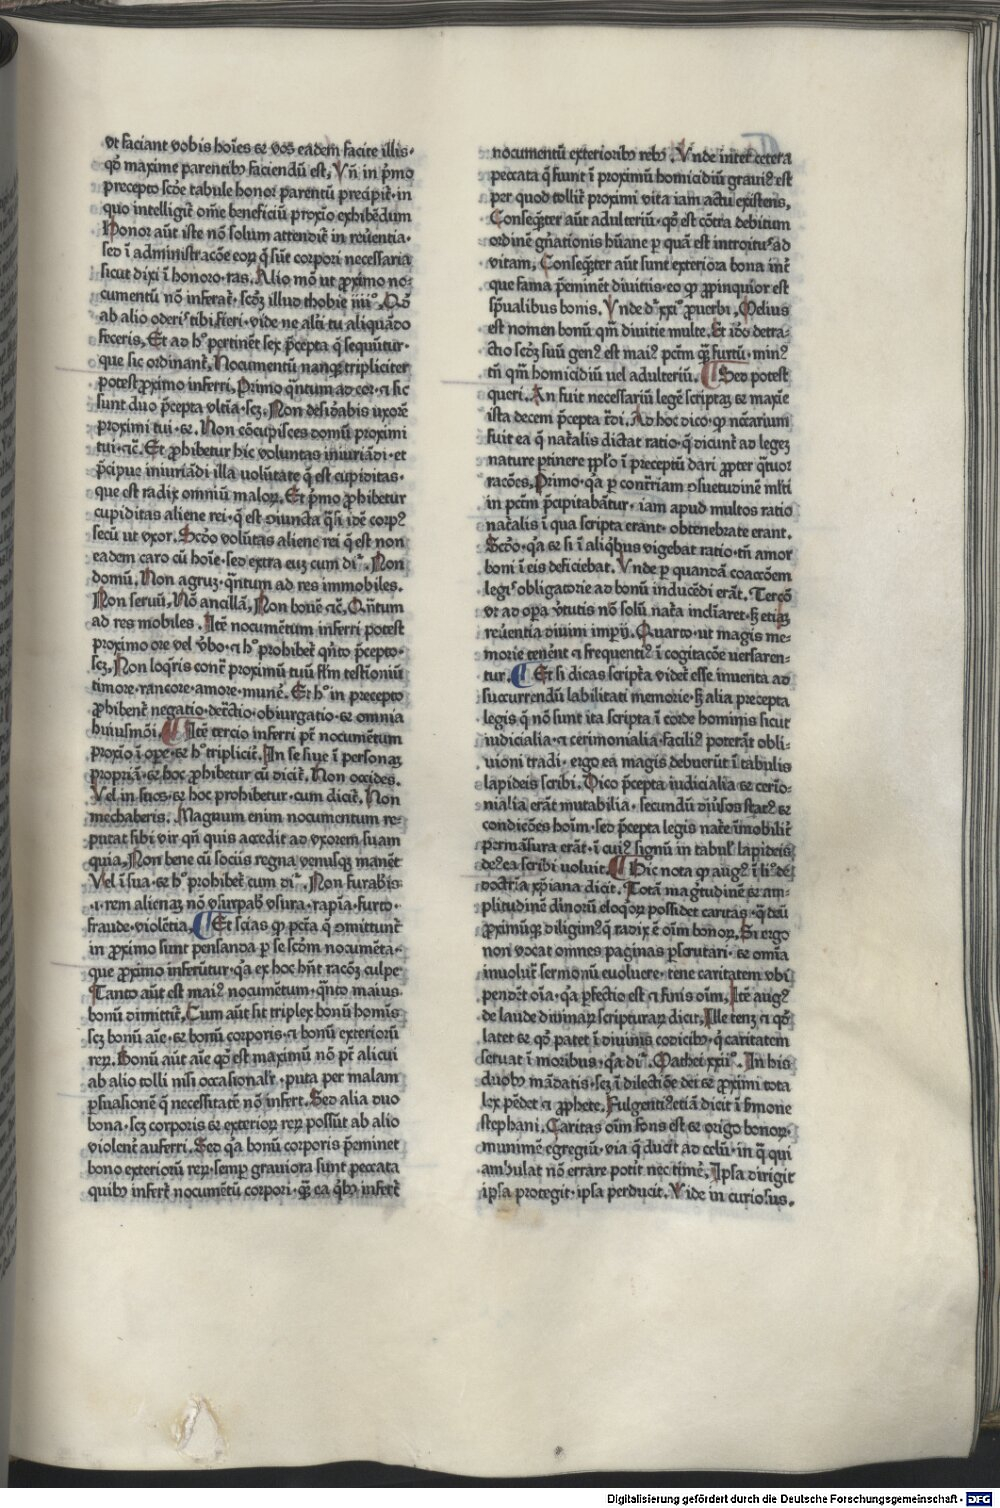 vt faciant vobis hoīes ⁊ vos eadem facite illis·
qḋ maxime parentibꝰ faciendū est, Vñ in p̄mo
precepto scḋe tabule honor parentū precipit᷑· in
quo intelligit᷑ om̄e beneficiū proxīo exhibēdum
Honor aūt iste nō solum attendit᷑ in reuerentia·
sed ī administracōe eorꝝ q̄ sūt corpori necessaria
sicut dixi ī honoro·ras. Alio mō ut ꝓximo no⸗
cumentū nō inferat᷑· scḋꝫ illud thobie iiii°. Qḋ
ab alio oderis tibi fieri· vide ne alt̓i tu aliquādo
feceris, Et ad h° pertinēt sex p̄cepta q̄ sequūtur·
que sic ordinant᷑. Nocumentū nanqꝫ tripliciter
potest ꝓximo inferri, Primo q̄ntum ad cor·⁊ sic
sunt duo p̄cepta vltīa· scꝫ. Non desid̓abis uxorē
proximi tui·⁊. Non cōcupisces domū proximi
tui·⁊c̄. Et ꝓhibetur hic voluntas iniuriādi·et
p̄cipue iniuriādi illa volūtate q̄ est cupiditas·
que est radix omniū malorꝝ. Et p̄mo ꝓhibetur
cupiditas aliene rei·q̄ est ↄiuncta q̄si idē corpꝰ
secū ut vxor. Scḋo volūtas aliene rei q̄ est non
eadem caro cū hoīe·sed extra eūꝫ cum dī. Non
domū. Non agruꝫ·q̄ntum ad res immobiles.
Non seruū, Nō ancillā, Non bouē ⁊c̄. Q̄ntum
ad res mobiles. Itē nocumētum inferri potest
proximo ore vel v̓bo·⁊ h° prohibet᷑ q̄nto p̄cepto·
scꝫ, Non loq̄ris contᷓ proximū tuū fl̄m testīoniū
timore·rancore·amore·mun̓e. Et h° in precepto
ꝓhibent᷑ negatio·detᷓctio·obiurgatio·⁊ omnia
huiusmōi. ¶ Itē tercio inferri pt̄ nocumētum
proxīo ī ope·⁊ h° triplicit᷑. In se siue ī personaꝫ
propriā·⁊ hoc ꝓhibetur cū dicit᷑. Non occides.
Vel in suos·⁊ hoc prohibetur·cum dicit᷑. Non
mechaberis. Magnum enim nocumentum re⸗
putat sibi vir qn̄ quis accedit ad vxorem suam
quia, Non bene cū sociis regna venusqꝫ manēt
Vel ī sua·⁊ h° prohibet᷑ cum dī. Non furab̓is
·ı·rem alienaꝫ nō vsurpab̓ vsura·rapīa·furto·
fraude·violētia. ¶ Et scias qꝫ pctā q̄ ↄmittunt᷑
in ꝓximo sunt pensanda p se scḋm nocumēta·
que ꝓximo inferūtur·q̄a ex hoc hn̄t racōꝫ culpe
Tanto aūt est maiꝰ nocumētum·q̄nto maius
bonū dimittit᷑. Cum aūt sit triplex bonū homīs
scꝫ bonū aīe·⁊ bonū corporis·⁊ bonū exteriorū
rerꝝ. Bonū aūt aīe qḋ est maximū nō pt̄ alicui
ab alio tolli nisi occasional᷑r·puta per malam
ꝑsuasionē q̄ necessitatē nō infert. Sed alia duo
bona·scꝫ corporis ⁊ exteriorꝝ rerꝝ possūt ab alio
violent᷑ auferri. Sed q̄a bonū corporis p̄eminet
bono exteriorū rerꝝ·semꝑ grauiora sunt peccata
quibꝰ infert᷑ nocumētū corpori·q̄ꝫ ea q̄bꝰ infert᷑
nocumentū exterioribꝰ rebꝰ. Vnde inter cetera
peccata q̄ fiunt ī proximū homicidiū grauiꝰ est
per quod tollit᷑ proximi vita iam actu existens,
Conseq̄nter aūt adulteriū·qḋ est cōtra debitum
ordinē gn̄ationis hūane ꝑ quā est introitus ad
vitam, Conseq̄nter aūt sunt exteriora bona int᷑
que fama p̄eminet diuitiis·eo qꝫ ꝓpinquior est
sp̄ualibus bonis. Vnde dī xxiͥ ꝓuerbi, Melius
est nomen bonū qm̄ diuitie multe. Et iḋo detra⸗
ctio scḋꝫ suū genꝰ est maiꝰ pctm̄ q̄ꝫ furtū·minꝰ
tn̄ qm̄ homicidiū uel adulteriū. ¶ Sed potest
queri. An fuit necessariū legē scriptaꝫ ⁊ maxīe
ista decem p̄cepta tᷓdi. Ad hoc dico·qꝫ nc̄carium
fuit ea q̄ natᷓalis dictat ratio·q̄ dicunt᷑ ad legeꝫ
nature ꝑtinere ip̄lo ī preceptū dari ꝓpter q̄tuor
racōes, Primo·q̄a ꝑ contᷓriam ↄsuetudinē ml̄ti
in pctm̄ p̄cipitabātur·iam apud multos ratio
natᷓalis ī qua scripta erant·obtenebrate erant.
Scḋo·q̄a ⁊ si ī aliq̄bus vigebat ratio·tn̄ amor
boni ī eis deficiebat. Vnde ꝑ quandā coactōem
legis obligatorie ad bonū inducēdi erāt. Tercō
vt ad oꝑa v̓tutis nō solū natᷓa inclīaret·sꝫ etiaꝫ
reu̓entia diuini imꝑij. Quarto·ut magis me⸗
morie tenent᷑ ⁊ frequentiꝰ ī cogitacōe uersaren⸗
tur. ¶ Et si dicas scriptᷓa videt᷑ esse inuenta ad
succurrendū labilitati memorie·sꝫ alia precepta
legis q̄ nō sunt ita scripta ī corde hominis sicut
iudicialia·⁊ cerimonialia·faciliꝰ poterāt obli⸗
uioni tradi·ergo ea magis debuerūt ī tabulis
lapideis scribi. Dico p̄cepta iudicialia ⁊ cerīo⸗
nialia erāt mutabilia·secundū diu̓sos statꝰ ⁊
condicōes hoīm·sed p̄cepta legis natᷓe īmobilit᷑
ꝑmāsura erāt·ī cuiꝰ signū in tabul̓ lapideis
deꝰ ea scribi voluit. ¶ Hic nota qꝫ augꝰ ī liꝰ de
doctrīa xp̄iana dicit. Totā mag̓tudinē ⁊ am⸗
plitudinē diuinorū eloq̓orꝝ possidet caritas·q̄ deū
ꝓximūqꝫ diligimꝰ q̄ radix ē oīm bonorꝝ, Si ergo
non vacat omnes paginas ꝑscrutari·⁊ om̄ia
inuolut᷑ sermonū euoluere·tene caritatem vbi
pendēt oīa·q̄a ꝑfectio est ⁊ finis oīm, Itē augꝰ
de laude diuinarꝝ scripturarꝝ dicit, Ille tenꝫ ⁊ qḋ
latet ⁊ qḋ patet ī diuinis codicibꝰ·q̄ caritatem
seruat ī moribus·q̄a dī. Mathei xxii°. In his
duobꝰ mādatis·scꝫ ī dilectiōe dei ⁊ ꝓximi tota
lex pēdet ⁊ ꝓphete. Fulgentiꝰ etiā dicit ī s̓mone
stephani, Caritas oīm fons est ⁊ origo bonorꝝ·
munimē egregiū·via q̄ ducit ad celū·in q̄ qui
ambulat nō errare potit nec timet᷑. Ipsa dirigit
ipsa protegit·ipsa perducit. Vide in curiosus.
Digitalisierung gefördert durch die Deutsche Forschungsgemeinschaft - DFG